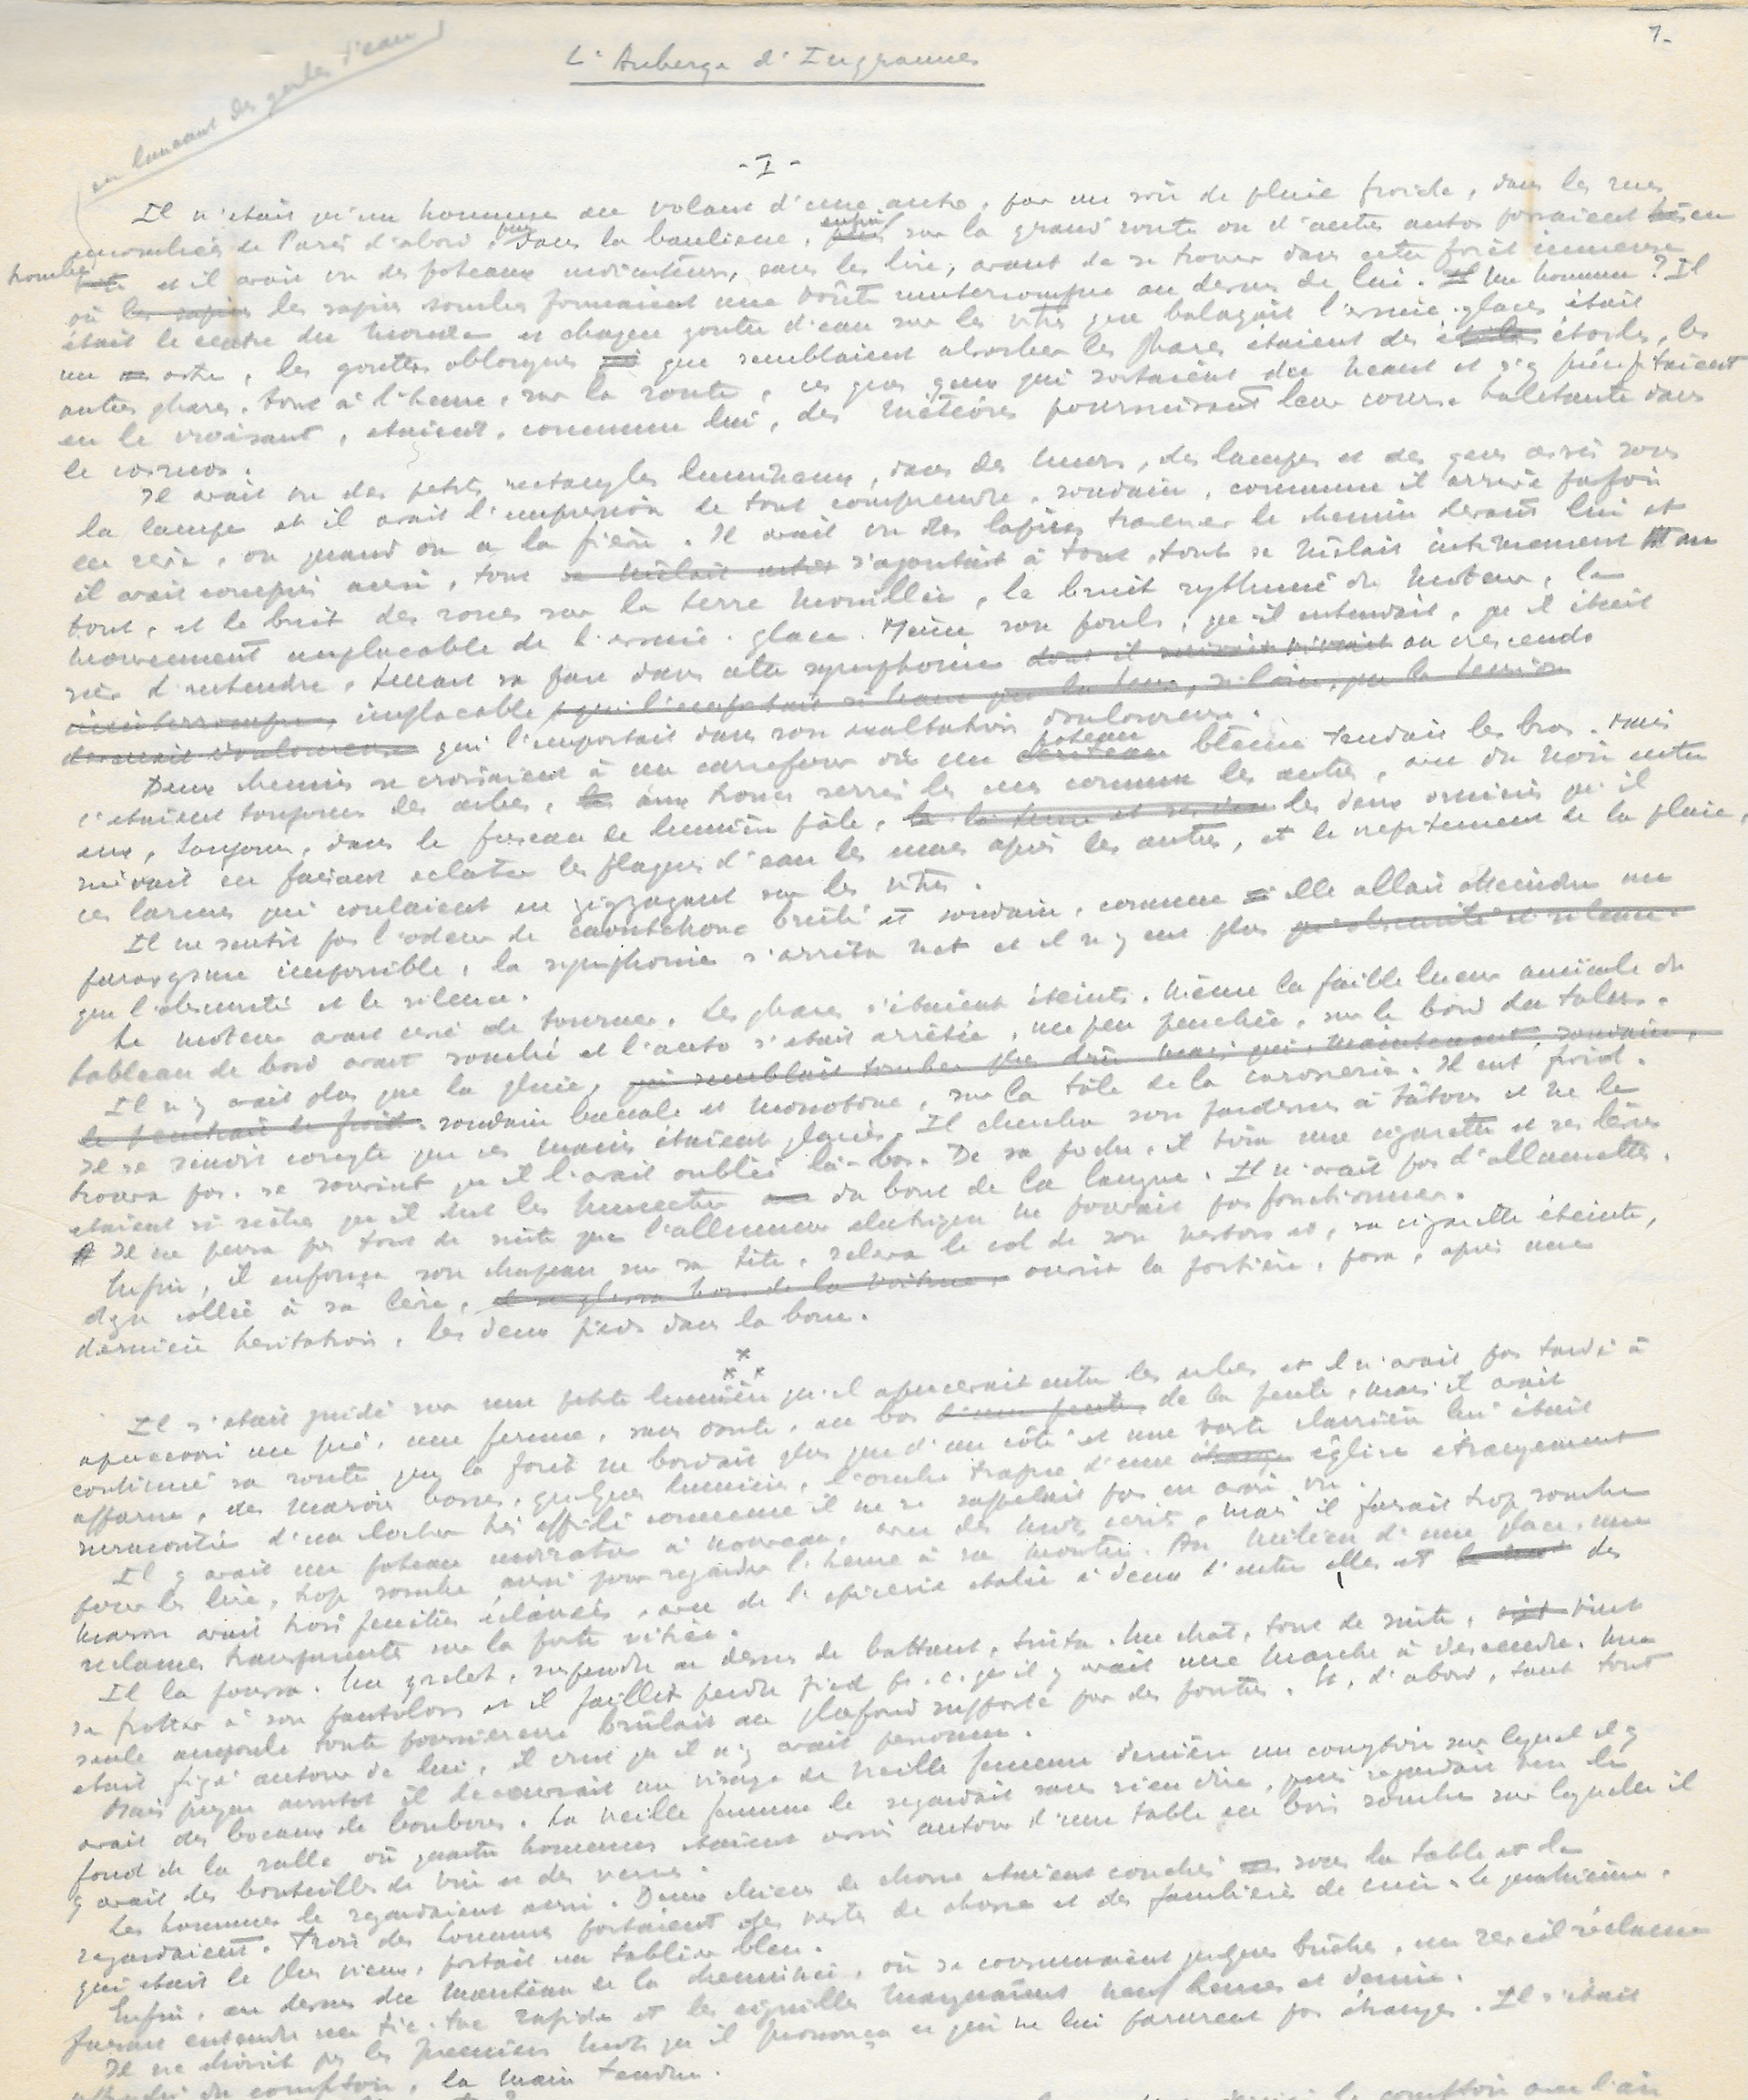 1-
en lançant des gerbes d'eau
L'Auberge d'Ingrannes
- I -
Il n'était qu'un homme au volant d'une auto, par un soir de pluie froide, dans les rues
encombrées de Paris d'abord, puis dans la banlieue, enfin sur la grand'route où d'autres autos passaient en
trombe et il avait vu des poteaux indicateurs, sans les lire, avant de se trouver dans cette forêt immense
où les sapins les sapins sombres formaient une voûte ininterrompue au dessus de lui. Un homme ? Il
était le centre du monde et chaque goutte d'eau sur les vitres que balayait l'essuie-glaces était
un astre, les gouttes oblongues que semblaient absorber les phares étaient des étoiles, les
autres phares, tout à l'heure, sur la route, ces gros yeux qui sortaient du néant et s'y précipitaient
en le croisant, étaient, comme lui, des météores poursuivant leur course haletante dans
le cosmos.
Il avait vu des petits rectangles lumineux, dans des murs, des lampes et des gens assis sous
la lampe et il avait l'impression de tout comprendre, soudain, comme il arrive parfois
en rêve, ou quand on a la fièvre. Il avait vu des lapins traverser le chemin devant lui et
il avait compris aussi, tout se mêlait s'ajoutait à tout, tout se mêlait intimement au
tout, et le bruit des roues sur la terre mouillée, le bruit rythmé du moteur, le
mouvement implacable de l'essuie-glace. Même son pouls, qu'il entendait, qu'il était
sûr d'entendre, tenait sa part dans cette symphonie dont il suivait au crescendo
ininterrompu, implacable, qui l'emportait si haut, si loin, que la tension
devenait douloureuse qui l'emportait dans son exaltation douloureuse.
Deux chemins se croisaient à un carrefour où un poteau blême tendait les bras. Mais
c'étaient toujours des arbres, aux troncs serrés les uns comme les autres, avec du noir entre
eux, toujours, dans le fuseau de lumière pâle, les deux ornières qu'il
suivait en faisant éclater les flaques d'eau les unes après les autres, et le crépitement de la pluie,
ces larmes qui coulaient en zigzagant sur les vitres.
Il ne sentit pas l'odeur de caoutchouc brûlé et soudain, comme elle allait atteindre un
paroxysme impossible, la symphonie s'arrêta net et il n'y eut plus qu'obscurité et silence.
que l'obscurité et le silence.
Le moteur avait cessé de tourner. Les phares s'étaient éteints. Même la faible lueur amicale du
tableau de bord avait sombré et l'auto s'était arrêtée, un peu penchée, sur le bord du talus.
Il n'y avait plus que la pluie, qui semblait tomber plus dru mais qui, maintenant, soudain,
soudain banale et monotone, sur la tôle de la carosserie. Il eut froid.
Il se rendit compte que ses mains étaient glacées. Il chercha son pardessus à tâtons et ne le
trouva pas, se souvint qu'il l'avait oublié là-bas. De sa poche, il tira une cigarette et ses lèvres
étaient si sèches qu'il dut les humecter du bout de la langue. Il n'avait pas d'allumettes.
Il ne pensa pas tout de suite que l'allumeur électrique ne pouvait pas fonctionner.
Enfin, il enfonça son chapeau sur sa tête, releva le col de son veston et, sa cigarette éteinte,
déjà collée à sa lèvre, il se glissa hors de la voiture, ouvrit la portière, posa, après une
dernière hésitation, les deux pieds dans la boue.
* * *
Il s'était guidé sur une petite lumière qu'il apercevait entre les arbres et il n'avait pas tardé à
apercevoir un pré, une ferme, sans doute, au bas d'une pente, de la pente, mais il avait
continué sa route que la forêt ne bordait plus que d'un côté et une vaste clairière lui était
apparue, des maisons basses, quelques lumières, l'ombre trapue d'une étrange église étrangement
surmontée d'un clocher très effilé comme il ne se rappelait pas en avoir vu.
Il y avait un poteau indicateur à nouveau, avec des mots écrits, mais il faisait trop sombre
pour les lire, trop sombre aussi pour regarder l'heure à sa montre. Au milieu d'une place, une
maison avait trois fenêtres éclairées, avec de l'épicerie étalée à deux d'entre elles et des
réclames transparentes sur la porte vitrée.
Il la poussa. Un grelot, suspendu au dessus du battant, tinta. Un chat, tout de suite, vint
se frotter à son pantalon et il faillit perdre pied p.c.q. il y avait une marche à descendre. Une
seule ampoule toute poussiéreuse brûlait au plafond supporté par des poutres. Et, d'abord, tant tout
était figé autour de lui, il crut qu'il n'y avait personne.
Mais presque aussitôt il découvrait un visage de vieille femme derrière un comptoir sur lequel il y
avait des bocaux de bonbons. La vieille femme le regardait sans rien dire, puis regardait vers le
fond de la salle où quatre hommes étaient assis autour d'une table en bois sombre sur laquelle il
y avait des bouteilles de vin et des verres.
Les hommes le regardaient aussi. Deux chiens de chasse étaient couchés sous la table et le
regardaient. Trois des hommes portaient des vestes de chasse et des jambières de cuir. Le quatrième,
qui était le plus vieux, portait un tablier bleu.
Enfin, au dessus du manteau de la cheminée, où se consumaient quelques bûches, un réveil réclame
faisait entendre un tic-tac rapide et les aiguilles marquaient neuf heures et demie.
Il ne choisit pas les premiers mots qu'il prononça et qui ne lui parurent pas étranges. Il s'était
approché du comptoir, la main tendue.